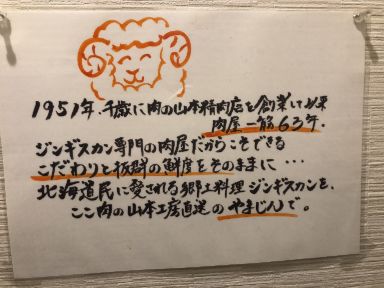 1951年、千歳に肉の山本精肉店を創業して以来
肉屋一筋63年。
ジンギスカン専門の肉屋だからこそできる
こだわりと抜群の鮮度をそのままに…
北海道民に愛される郷土料理ジンギスカンを、
ここ肉の山本工房直送のやまじんで。